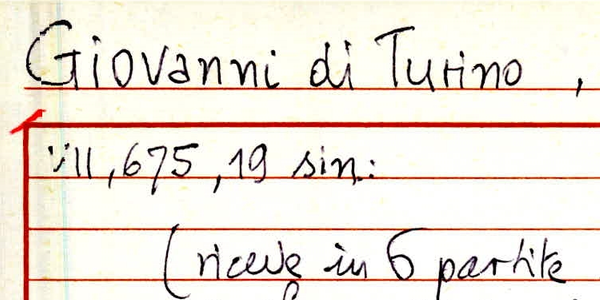 Giovanni di Turino,
VII, 675, 19 sin:
(riceve in 6 partite